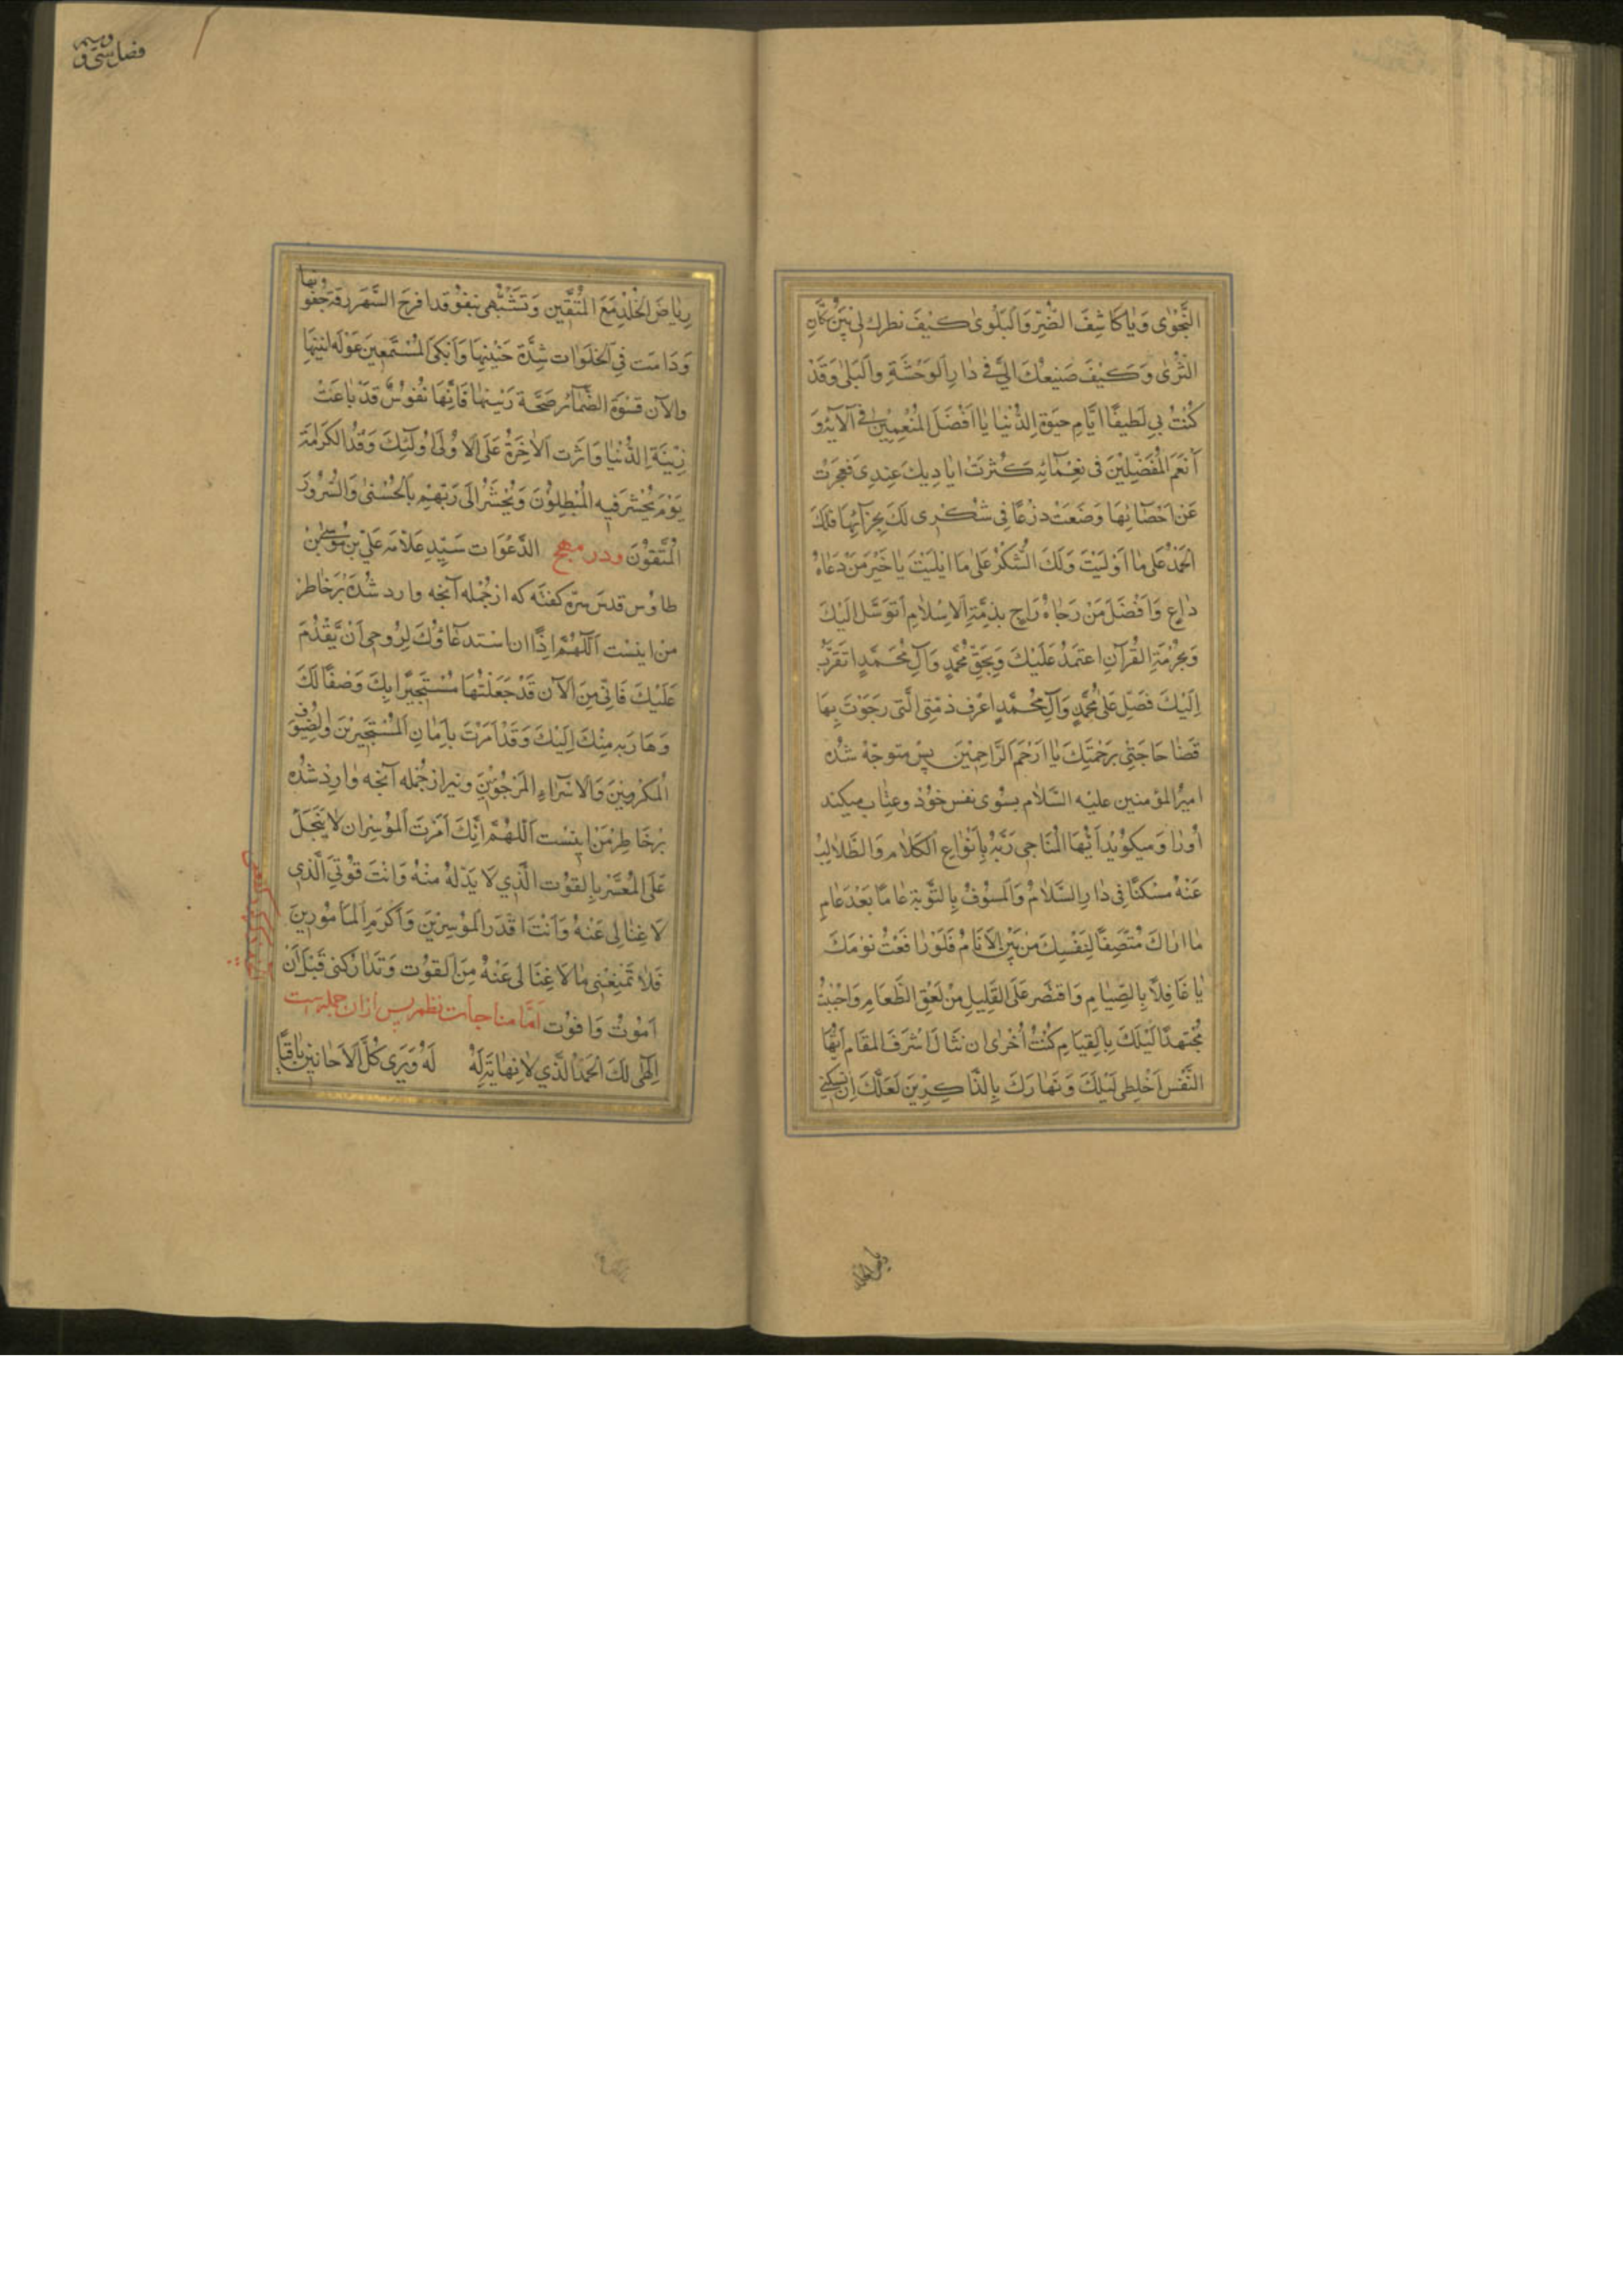 النَّجْوٰی وَیٰا كَاشِفَ الضُّرِّ وَالْبَلْوٰی كَیْفَ نظرك لی بَیْنَ سُكَّانِ
الثَّرٰی وَكَیْفَ صَنِیعُكَ اِلَیَّ فی دٰارِ الْوَحْشَةِ وَالْبَلٰی وَقَدْ
كُنْتَ بی لَطیفًا اَیَّامِ حَیٰوةِ الدُّنْیٰا یٰا اَفْضَلَ الْمُنْعِمِینَ فی آلَآئِه وَ
اَنْعَمَ الْمُفَضِّلِیْنَ فی نِعْمَآئِهِ كَثُرَتْ اَیٰادِیكَ عِنْدِی فَعَجَزْتُ
عَنْ اِحْصَائِهَا وَضَعَتْ ذَرْعًا فی شُكْرِی لَكَ بِجَزَآئِهَا فَلَكَ
الْحَمْدُ عَلٰی مٰا اَوْلَیْتَ وَلَكَ الشُّكْرُ عَلٰی مَا ابْلَیْتَ یٰا خَیْرَ مَنْ دَعَاهُ
دٰاعٍ وَاَفْضَلَ مَنْ رَجٰاهُ رَاجٍ بِذِمَّةِ الْاِسْلٰامِ اَتَوَسَّلُ اِلَیْكَ
وَبِحُرْمَةِ الْقُرْآنِ اَعْتَمِدُ عَلَیْكَ وَبِحَقِّ مُحَمَّدٍ وَآلِ مُحَمَّدٍ اَتَقَرَّبُ
اِلَیْكَ فَصَلِّ عَلٰی مُحَمَّدٍ وَآلِ مُحَمَّدٍ اعْرِف ذِمَّتِی الَّتی رَجَوْتُ بِهَا
قَضٰا حَاجَتِی بِرَحْمَتِكَ یٰا اَرْحَمَ الرَّاحِمِیْنَ پس متوجّه شده
امیرُ المؤمنین علیْه السَّلَام بِسُوی نفس خُوْد وعِتٰاب میكند
اُورٰا وَمیكویْد اَیُّهَا الْمُنَاجِی رَبَّهُ بِاَنْوٰاعِ الْكَلٰامِ وَالطَّالِبُ
عَنْهُ مَسْكَنًا فِی دٰارِ السَّلٰامِ وَالْمُسَوِّفُ بِالتَّوْبَةِ عٰامًا بَعْدَ عَامٍ
مٰا اَرٰاكَ مُنْصِفًا لِنَفْسِكَ مِنْ بَیْنِ الْاَنَامُ فَلَوْ رَافَعْتُ نَوْمَكَ
یٰا غَافِلًا بِالصِّیَامِ وَاقْتَصَرَ عَلَی الْقَلِیلِ مِنْ لَعِقِ الطَّعَامِ وَاَحْیَیْتُ
مُجْتَهِدًا لَیْلَكَ بِالْقِیَامِ كُنْتُ اَحْرٰی ان تَنٰالَ اَشْرَفَ الْمَقَام اَیُّهَا
النَّفْس اَخْلِطِی لَیْلَكَ وَنَهَارَكَ بِالذَّاكِرِیْنَ لَعَلَّكَ اَنْ تَسْكُنِی
ریاض الخلد
فصل سی و
رِیٰاضَ الْخُلْدِ مَعَ الْمُتَّقِین وَتَشَبَّهِی بِنُفُوْ قد اقرح السَّهَر رِقَّةَ جُفُونِهَا
وَدَامَت فِی الْخَلَوٰات شِدَّةَ حَنِیْنِهَا وَاَبْكَی الْمُسْتَمِعِیْنَ عَوْلَه
والآن قَسْوَةَ الضَّمٰآئر رَنِینِهٰا فَاِنَّهَا نُفُوْسٌ قَدْ بٰاعَتْ
زِیْنَةِ الدُّنْیٰا وَاثَرَت الْاٰخِرَةُ عَلَی الاُوْلَی اُولٰئِكَ وَفْدُ الْكَرٰامَةِ
یَوْمَ یُخْسَر فِیهِ الْمُبْطِلُوْنَ وَیُحْشَرُ اِلَی رَبِّهِمْ بِالْحُسْنٰی وَالسُّرُوْرَ
الْمُتَّقُوْنَ ودر مهج الدَّعَوٰات سَیِّدِ عَلَّامَه عَلی بْنِ مُوسٰی بْنْ
طاوُس قدس سرّه كفتَه كه از جُمْله آنجه وارد شُدَه بَرْخَاطر
مَنْ اینَسْت اَللّٰهُمَّ اِذًا ان اسْتدعَآؤُكَ لِرُوحی اَنْ یَّقْدُمَ
عَلَیْكَ فَاِنِّی مِنَ الْآن قَدْ جَعَلْتُهَا مُسْتَجِیرًا بِكَ وَضَفًا لَكَ
وَهَارَبه مِنْكَ اِلَیْكَ وَقَدْ اَمَرْتَ بِاَمٰانِ الْمُسْتَجِیرِیْنَ وَالضُّیُوْفِ
الْمَكْرُوبینَ وَالْاُسَرٰاءِ الْمَرْجُوِّیْنَ ونیز از جُمْله آنجه وٰارِدْ شُدَه
بَرْخَاطِرِ مَنْ اینَسْت اَللّٰهُمَّ اِنَّكَ اَمَرْتَ الْمُؤْسِرَ ان لا یَبْخَلَ
عَلَی الْمُعَسَّرِ بِالقُوْت الَّذی لَا یَدّلهُ مِنْهُ وَانْتَ قُوْتِیَ الَّذِی
لَا غِنٰا لی عَنْهُ وَاَنْتَ اَقْدَرَ الْمُؤْسِرِیْنَ وَاَكْرَم الْمَأمُورِینَ
فَلَا تَمْنَعْنی مٰا لَا غِنَا لی عَنْهُ مِنَ الْقُوْت وَتَدَارَكْنی قَبْلَ اَنْ
اَمُوْتُ وَافُوْت اَمَّا مناجات نظم پس از ان جمله است
اِلٰهی لَكَ الْحَمْدُ الَّذی لٰا نِهٰایَةَ لَهُ وَیَرَی كُلّ الْاَحَایینِ بَاقِیًا